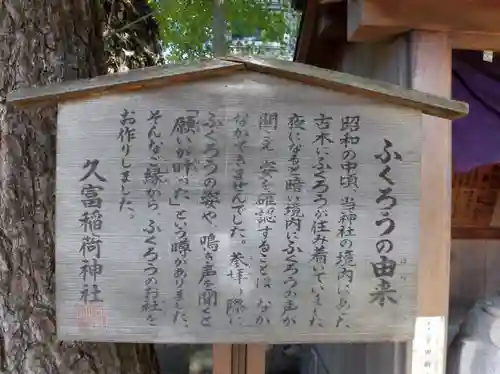 ふくろうの由来
昭和の中頃、当神社の境内にあった
古木にふくろうが住み着いていました
夜になると暗い境内にふくろうの声が
聞え 姿を確認することは なか
なかできませんでした。参拝の際に
ふくろうの姿や、鳴き声を聞くと
「願いが叶った」という噂がありました。
そんなご縁から、ふくろうのお社を
お作りしました。
久富稲荷神社